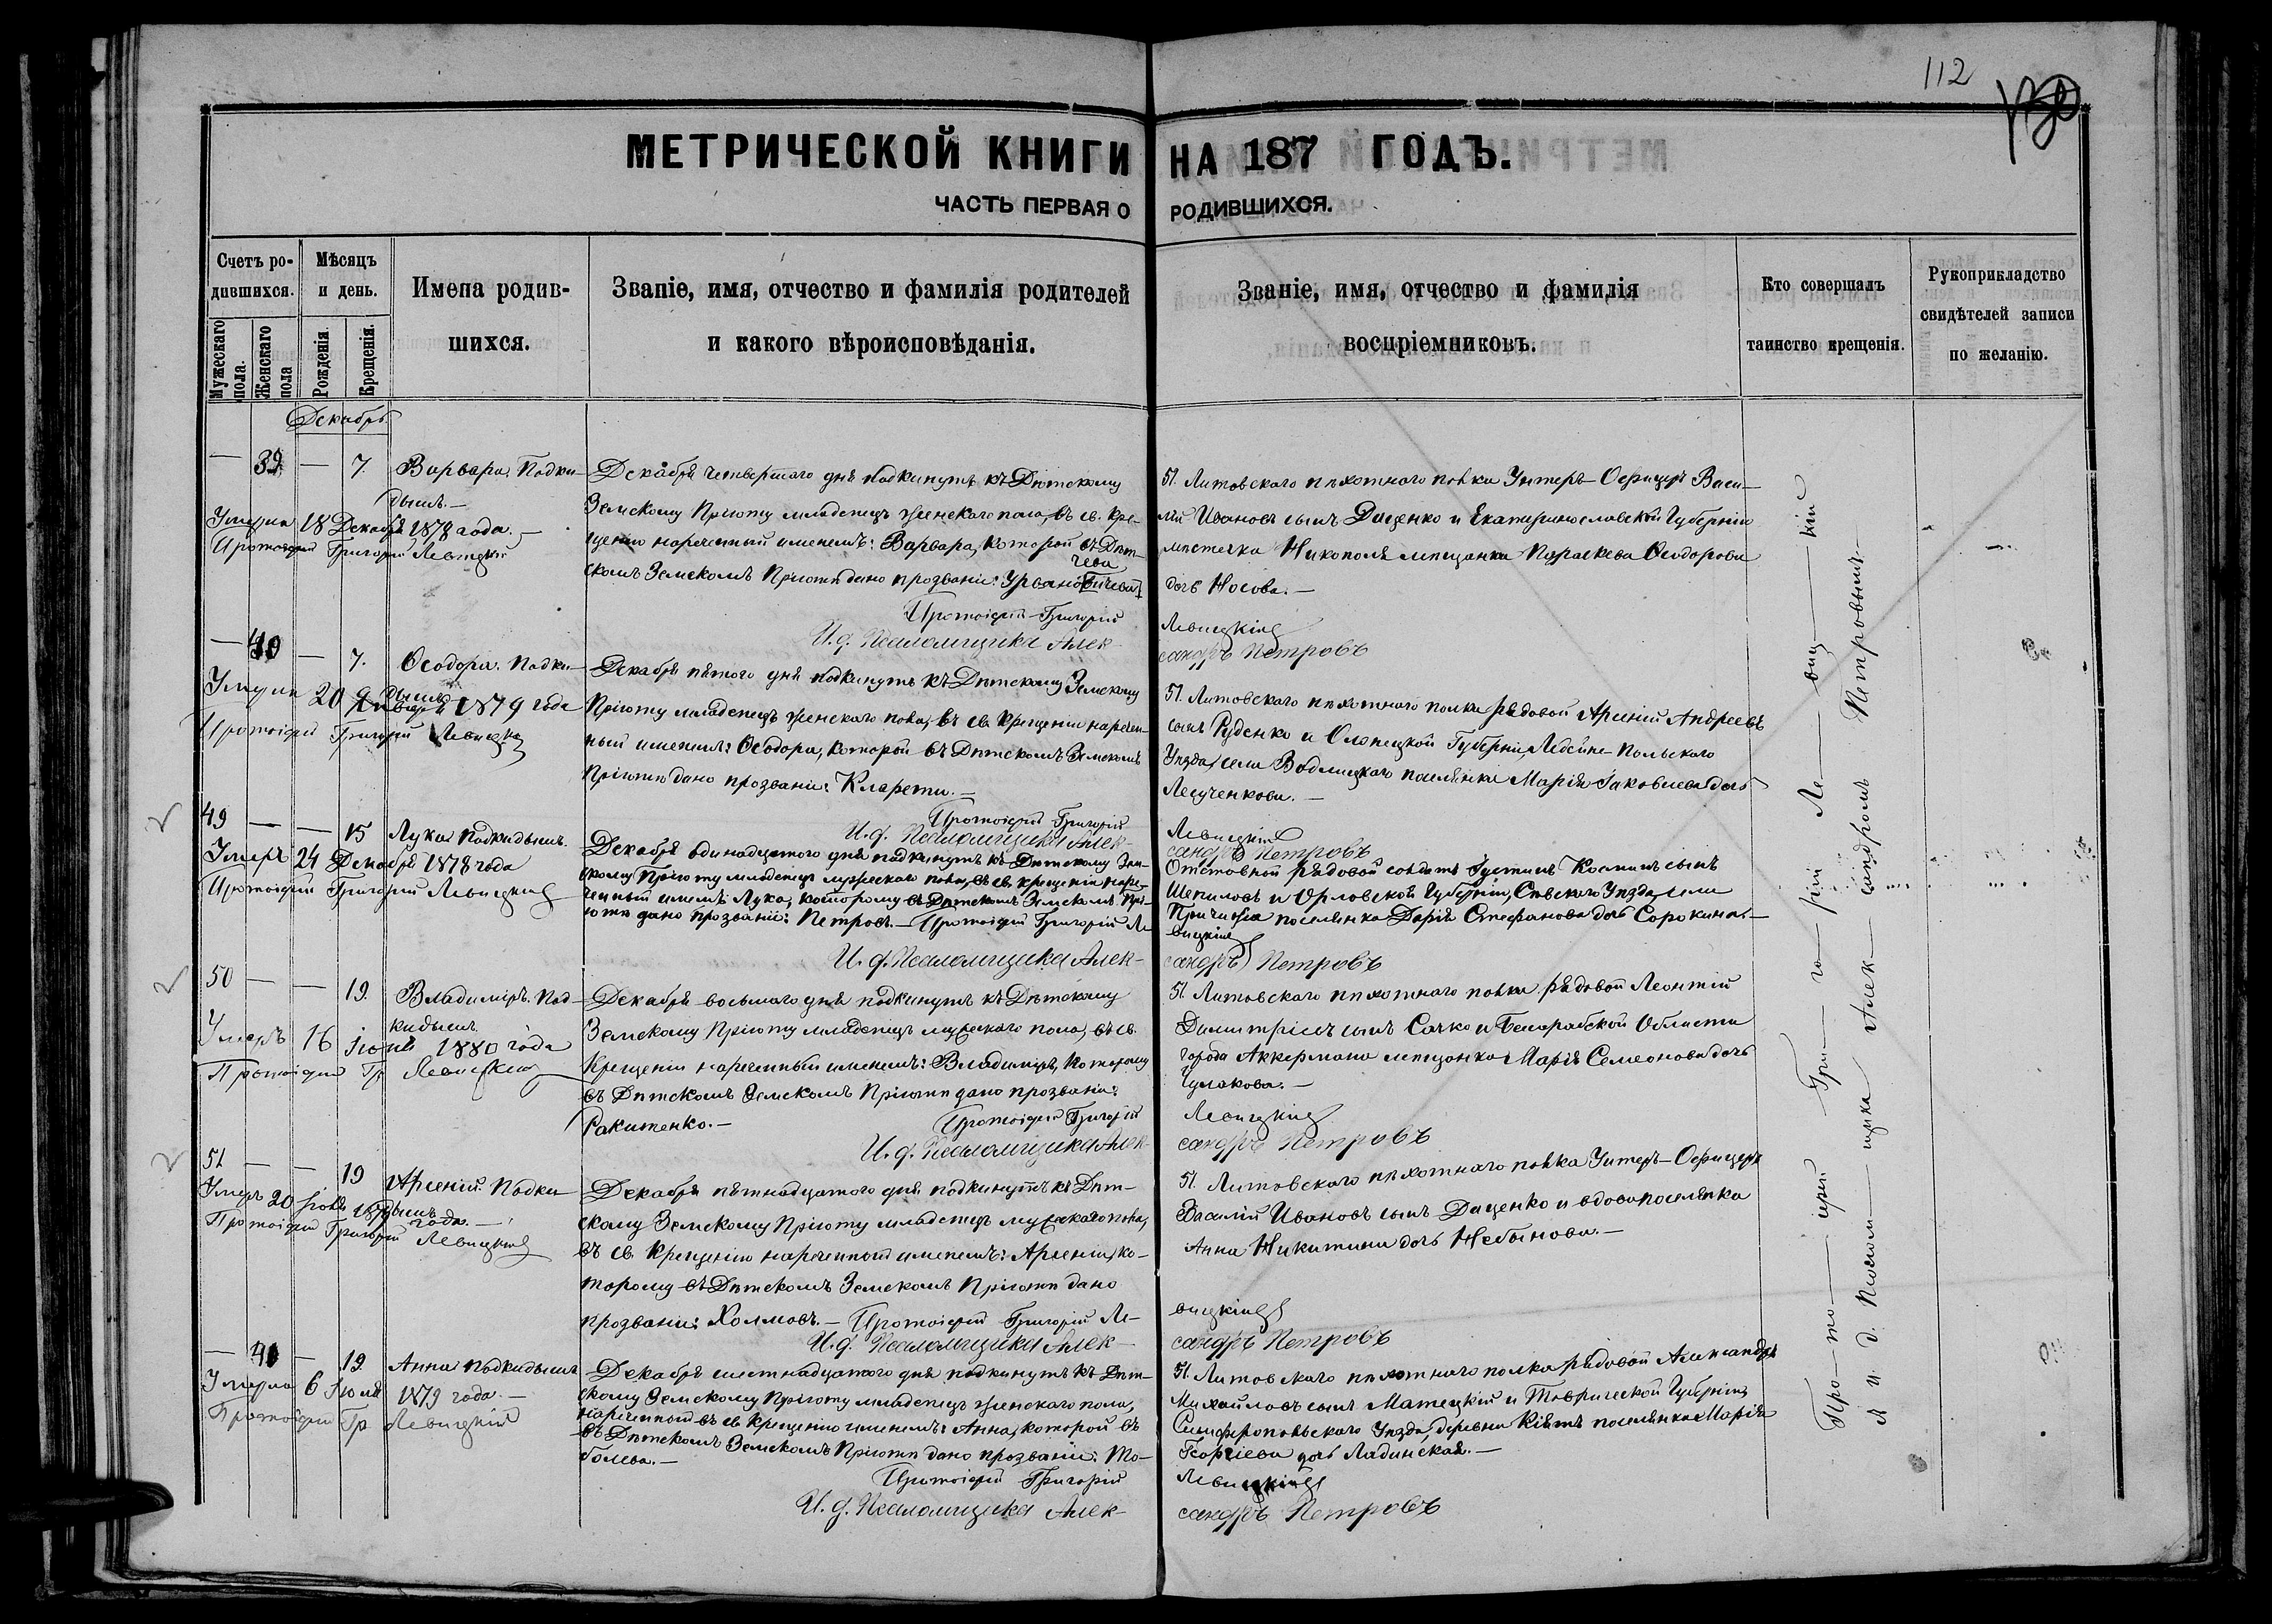 112
МЕТРИЧЕСКОЙ КНИГИ НА 187 ГОДЪ.
ЧАСТЬ ПЕРВАЯ О РОДИВШИХСЯ.
Счетъ ро-
дившихся.
Мужескаго пола.
Женскаго пола
Мѣсяцъ
и день.
Рожденія.
Крещенія.
Имена родив-
шихся.
Званіе, имя, отчество и фамилія родителей
и какого вѣроисповѣданія.
Званіе, имя, отчество и фамилія
воспріемниковъ.
Кто совершалъ
таинство крещенія.
Рукоприкладство
свидѣтелей записи
по желанію.
Декабрь
— 39 — 7. Варвара. Подки-
дышъ.—
Умерла 18 Декабря 1878 года.—
Протоіерей Григорій Левицкій
Декабря четвертаго дня подкинутъ къ Дѣтскому
Земскому Пріюту младенецъ женскаго пола, въ св. Кре-
щеніи нареченный именемъ: Варвара, которой въ Дѣт-
скомъ Земскомъ Пріютѣ дано прозваніе:
Протоіерей Григорій
И. д. Псаломщика Алек-
51. Литовскаго пѣхотнаго полка Унтеръ-Офицеръ Васи-
лій Ивановъ сынъ Даценко и Екатеринославской Губерніи
мѣстечка Никополя мѣщанка Параскева Ѳеодорова
дочь Носова.—
Левицкій
сандръ Петровъ
— 40 — 7. Ѳеодора. Подки-
дышъ
Умерла 20 Января 1879 года
Протоіерей Григорій Левицкій
Декабря пятого дня подкинутъ къ Дѣтскому Земскому
Пріюту младенецъ женскаго пола, въ св. Крещеніи наречен-
ный именемъ: Ѳеодора, которой въ Дѣтскомъ Земскомъ
Пріютѣ дано прозваніе: Кларети.—
Протоіерей Григорій
И. д. Псаломщика Алек-
51. Литовскаго пѣхотнаго полка рядовой Арсеній Андреевъ
сынъ Руденко и Олонецкой Губерніи, Лодейно-Польскаго
Уѣзда, села Водлицкаго поселянка Марія Іаковлева дочь
Левицкій
сандръ Петровъ
49 — — 15 Лука подкидышъ.
Умеръ 24 Декабря 1878 года
Протоіерей Григорій Левицкій
Декабря одинадцатого дня подкинутъ къ Дѣтскому Зем-
скому Пріюту младенецъ мужескаго пола, въ св. крещеніи наре-
ченный именемъ Лука, которому въ Дѣтскомъ Земскомъ Прі-
ютѣ дано прозваніе: Петровъ.— Протоіерей Григорій Ле-
И. д. Псаломщика Алек-
Отставной рядовой солдатъ Іустинъ Косминъ сынъ
Шепиловъ и Орловской Губерніи, Сѣвскаго Уѣзда, села
поселянка Дарія Стефанова дочь Сорокина.—
вицкій
сандръ Петровъ
50 — — 19. Владиміръ. Под-
кидышъ
Умеръ 16 Іюня 1880 года
Протоіерей Гр Левицкій
Декабря восьмаго дня подкинутъ къ Дѣтскому
Земскому Пріюту младенецъ мужескаго пола, въ св.
Крещеніи нареченный именемъ: Владиміръ, которому
въ Дѣтскомъ Земскомъ Пріютѣ дано прозваніе:
Ракитенко.— Протоіерей Григорій
И. д. Псаломщика Алек-
51. Литовскаго пѣхотнаго полка рядовой Леонтій
Димитріевъ сынъ Сачко и Бессарабской Области
города Аккермана мѣщанка Марія Семеонова дочь
Чумакова.—
Левицкій
сандръ Петровъ
51 — — 19 Арсеній. Подки-
дышъ
Умеръ 20 Іюня 1879 года.—
Протоіерей Григорій Левицкій
Декабря пятнадцатого дня подкинутъ къ Дѣт-
скому Земскому Пріюту младенецъ мужескаго пола,
въ св. Крещеніи нареченный именемъ: Арсеній, ко-
торому въ Дѣтскомъ Земскомъ Пріютѣ дано
прозваніе: Холмовъ.— Протоіерей Григорій Ле-
И. д. Псаломщика Алек-
51. Литовскаго пѣхотнаго полка Унтеръ-Офицеръ
Василій Ивановъ сынъ Даценко и вдова поселянка
Анна Никитина дочь Небанова.—
вицкій
сандръ Петровъ
— 41 — 19. Анна подкидышъ
Умерла 6 Іюля 1879 года.—
Протоіерей Гр Левицкій
Декабря шестнадцатого дня подкинутъ къ Дѣт-
скому Земскому Пріюту младенецъ женскаго пола,
нареченный въ св Крещеніи именемъ: Анна, которой въ
въ Дѣтскомъ Земскомъ Пріютѣ дано прозваніе: То-
болева.—
Протоіерей Григорій
И. д. Псаломщика Алек-
51. Литовскаго пѣхотнаго полка рядовой Александръ
Михайловъ сынъ Матецкій и Таврической Губерніи
Симферопольскаго Уѣзда, деревни Кіятъ поселянка Марія
Георгіева дочь Ладинская.—
Левицкій
сандръ Петровъ
Про — то — іерей — Гри — го — рій — Ле — виц — кій
и. д. Псалом — щика Алек — сандромъ Петровымъ.—